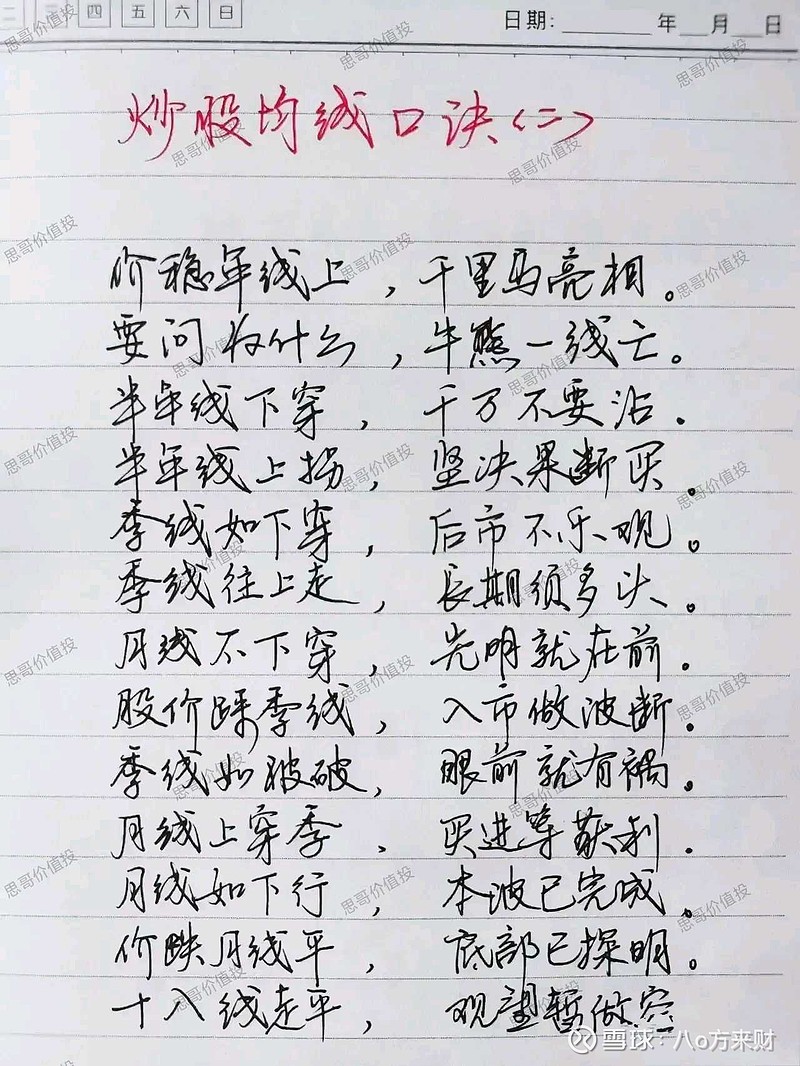 二 三 四 五 六 日
日期: 年 月 日
炒股均线口诀(二)
价稳年线上，千里马亮相。
要问为什么，牛熊一线亡。
半年线下穿，千万不要沾.
半年线上拐，坚决果断买.
季线如下穿，后市不乐观。
季线往上走，长期须多头。
月线不下穿，光明就在前.
股价踩季线，入市做波断.
季线如被破，眼前就有祸.
月线上穿季，买进等获利.
月线如下行，本波已完成.
价跌月线平，底部已探明。
十八线走平，观望暂做空
思哥价值投
雪球：八o方来财